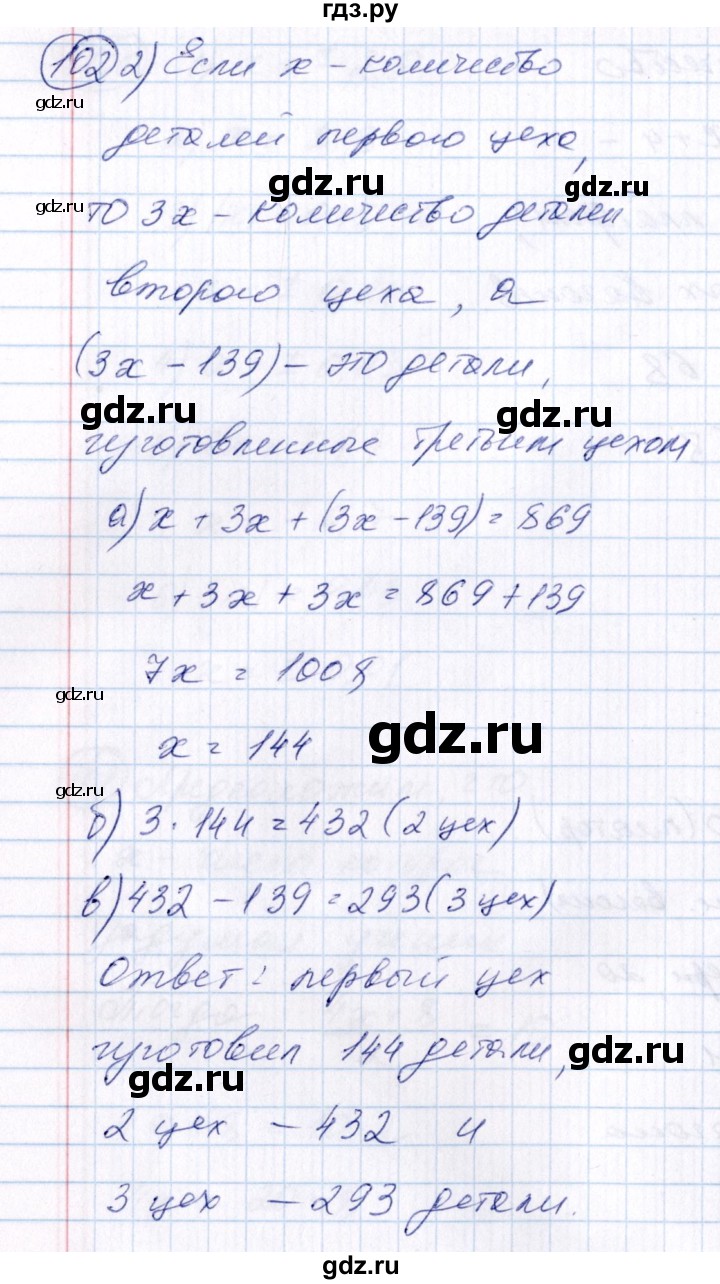 гдз.ру
102 2) Если x – количество
gdz.ru
деталей первого цеха,
gdz.ru gdz.ru
gdz.ru
то 3x – количество деталей
второго цеха, а
(3x – 139) – это детали,
gdz.ru gdz.ru
изготовленные третьим цехом
а) x + 3x + (3x – 139) = 869
x + 3x + 3x = 869 + 139
7x = 1008
gdz.ru
x = 144
gdz.ru
gdz.ru
б) 3 · 144 = 432 (2 цех)
в) 432 – 139 = 293 (3 цех)
Ответ: первый цех
изготовил 144 детали,
gdz.ru gdz.ru
2 цех – 432 и
3 цех – 293 детали.
gdz.ru